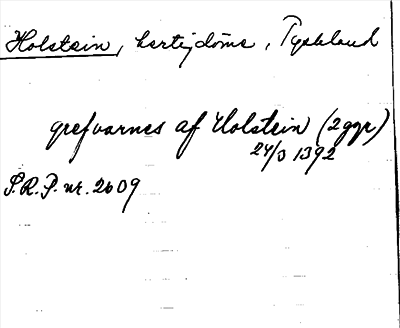 Holstein, hertigdöme, Tyskland
grefvarnes af Holstein (2 ggr)
24/3 1392
S.R.P. nr. 2609